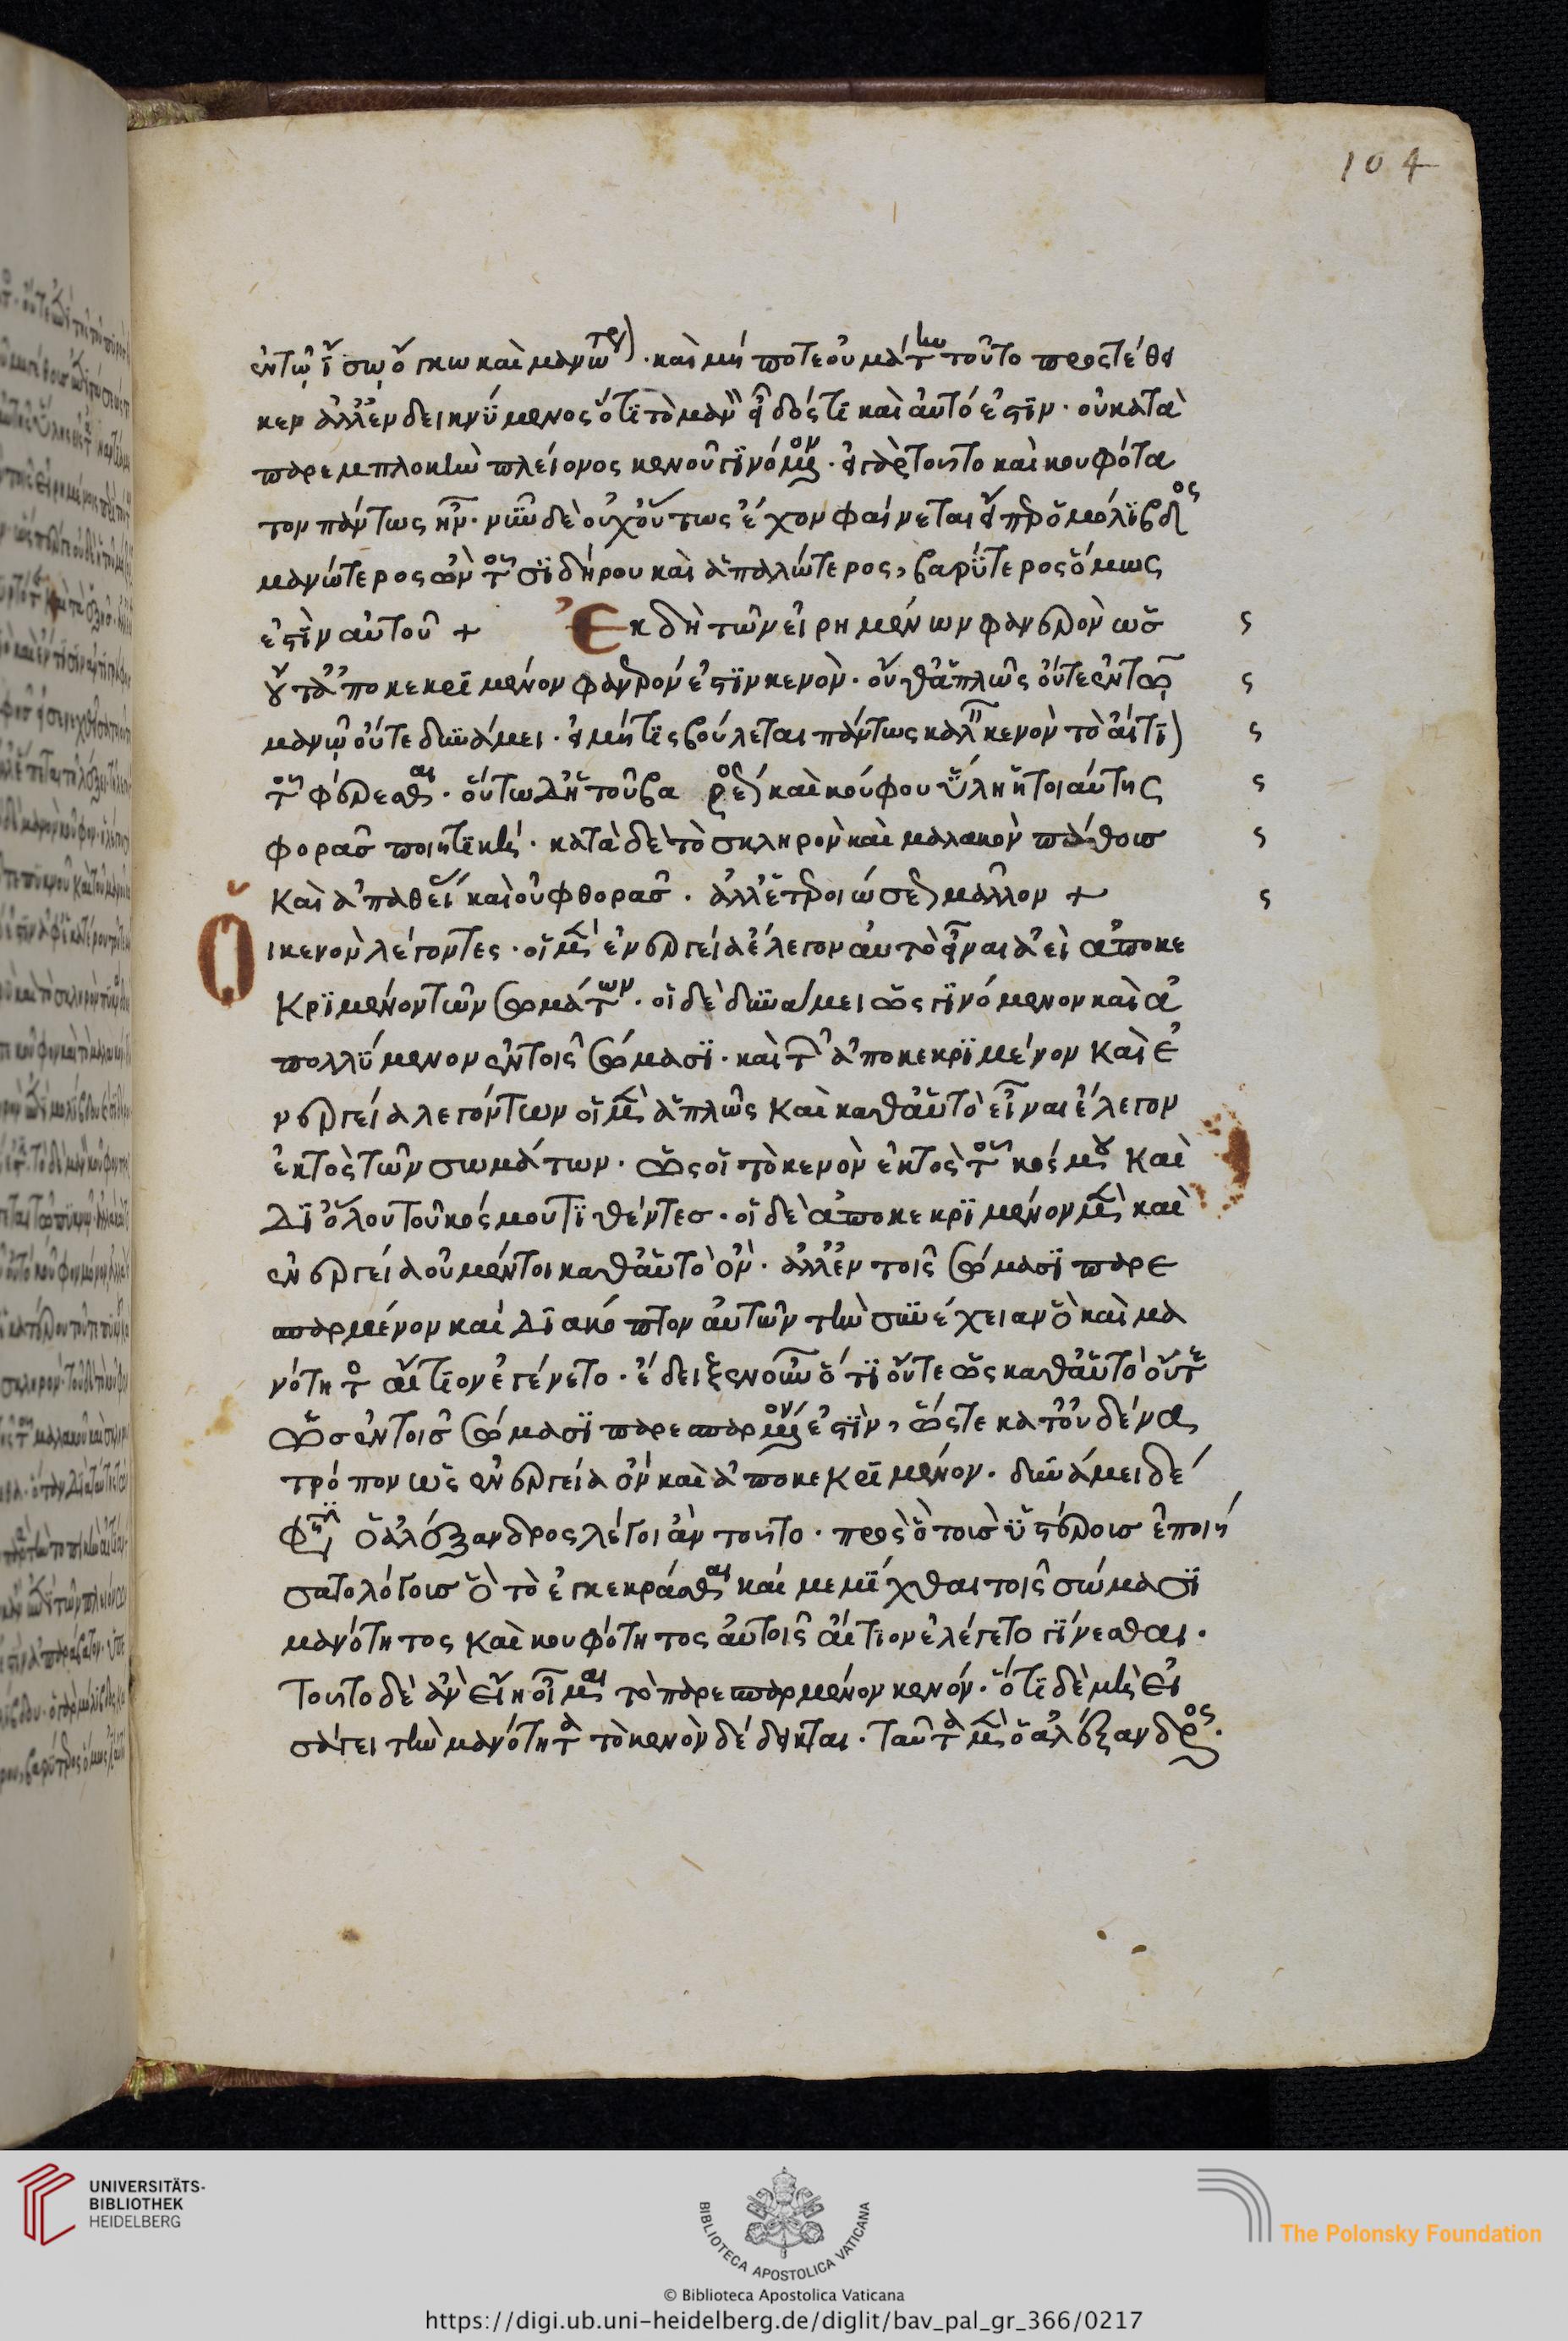 104
ἐν τῷ ἴσῳ ὄγκῳ καὶ μανωτέρῳ · καὶ μήποτε οὐ μάτην τοῦτο προστέθει
κεν ἀλλ' ἐνδεικνύμενος ὅτι τὸ μανὸν εἶδός τι καὶ αὐτό ἐστιν · οὐ κατὰ
παρεμπλοκὴν πλείονος κενοῦ γινόμενον · εἰ γὰρ τοῦτο καὶ κουφότα
τον πάντως ἦν · νῦν δὲ οὐχ οὕτως ἔχον φαίνεται εἴπερ ὁ μόλιβδος
μανώτερος ὢν τοῦ σιδήρου καὶ ἁπαλώτερος, βαρύτερος ὅμως
ἐστὶν αὐτοῦ + Ἐκ δὴ τῶν εἰρημένων φανερὸν ὡς
οὔτ' ἀποκεκριμένον φανερόν ἐστιν κενὸν · οὔθ' ἁπλῶς οὔτε ἐν τῷ
μανῷ οὔτε δυνάμει · εἰ μή τις βούλεται πάντως καλεῖν κενὸν τὸ αἴτιον
τοῦ φέρεσθαι · οὕτω δ' ἡ τοῦ βαρέος καὶ κούφου ὕλη ᾗ τοιαύτης
φορᾶς ποιητική · κατὰ δὲ τὸ σκληρὸν καὶ μαλακὸν πάθους
καὶ ἀπαθείας καὶ οὐ φθορᾶς · ἀλλ' ἑτεροιώσεως μᾶλλον +
Οἱ κενὸν λέγοντες · οἱ μὲν ἐνεργείᾳ ἔλεγον αὐτὸ εἶναι ἀεὶ ἀποκε
κριμένον τῶν σωμάτων · οἱ δὲ δυνάμει ὡς γινόμενον καὶ ἀ
πολλύμενον ἐν τοῖς σώμασι · καὶ τῶν ἀποκεκριμένον καὶ ἐ
νεργείᾳ λεγόντων οἱ μὲν ἁπλῶς καὶ καθ' αὑτὸ εἶναι ἔλεγον
ἐκτὸς τῶν σωμάτων · ὡς οἱ τὸ κενὸν ἐκτὸς τοῦ κόσμου καὶ
δι' ὅλου τοῦ κόσμου τιθέντες · οἱ δὲ ἀποκεκριμένον μὲν καὶ
ἐνεργείᾳ οὐ μέντοι καθ' αὑτὸ ὄν · ἀλλ' ἐν τοῖς σώμασι παρε
σπαρμένον καὶ διακόπτον αὐτῶν τὴν συνέχειαν ὃ καὶ μα
νότητος αἴτιον ἐγένετο · ἔδειξεν οὖν ὅτι οὔτε ὡς καθ' αὑτὸ οὔτε
ὡς ἐν τοῖς σώμασι παρεσπαρμένον ἐστὶν, ὥστε κατ' οὐδένα
τρόπον ὡς ἐνεργείᾳ ὂν καὶ ἀποκεκριμένον · δυνάμει δέ
φησιν ὁ ἀλέξανδρος λέγοι ἂν τοῦτο · πρὸς ὃ τοὺς ὑστέρους ἐποιή
σατο λόγους ὃ τὸ ἐγκεκρᾶσθαι καὶ μεμίχθαι τοῖς σώμασι
μανότητος καὶ κουφότητος αὐτοῖς αἴτιον ἐλέγετο γίνεσθαι ·
Τοῦτο δὲ ἂν εἴη οἶμαι τὸ παρεσπαρμένον κενόν · ὅτι δὲ μὴ εἰ
σάγει τὴν μανότητα τὸ κενὸν δέδεικται · Ταῦτα μὲν ὁ ἀλέξανδρος ·
UNIVERSITÄTS-
BIBLIOTHEK
HEIDELBERG
BIBLIOTECA APOSTOLICA VATICANA
The Polonsky Foundation
© Biblioteca Apostolica Vaticana
https://digi.ub.uni-heidelberg.de/diglit/bav_pal_gr_366/0217